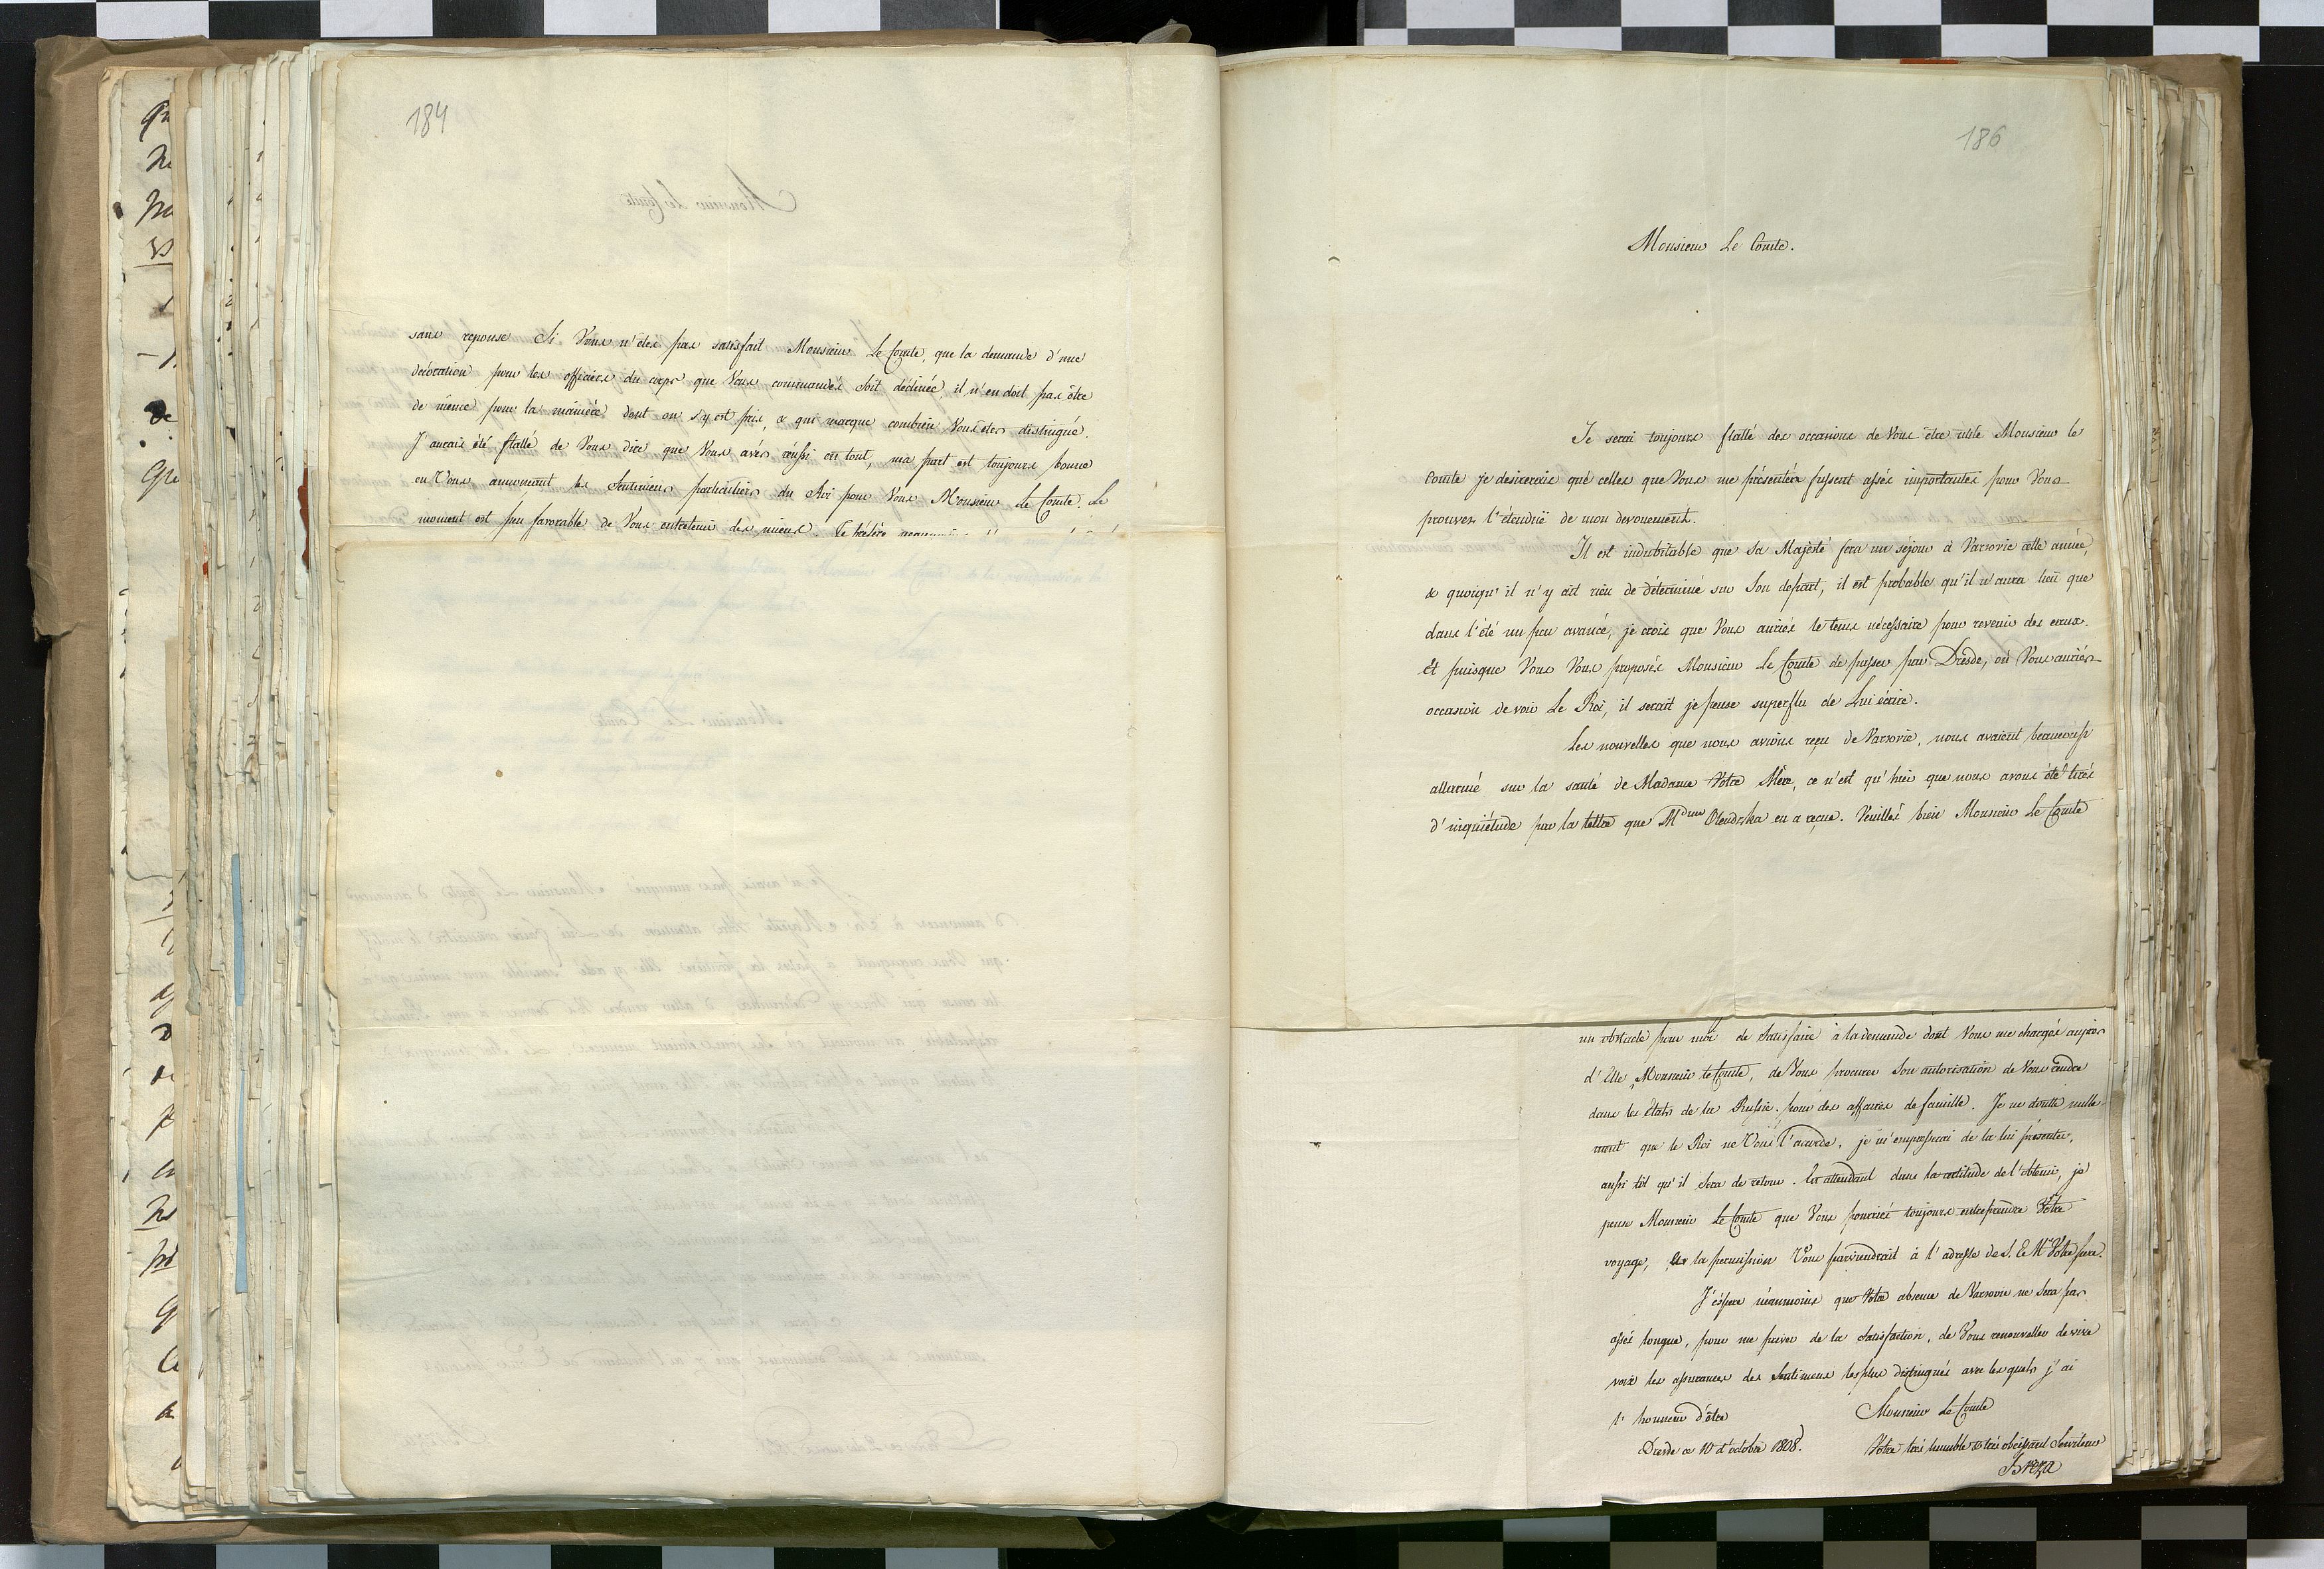 184
sans reponse Si Vous n'étes pas satisfait Monsieur Le Comte, que la demande d'une
décoration pour les officiers du corps que Vous commandés soit déclinée, il n'en doit pas être
de même pour la manière dont on s'y est pris, & qui marque combien Vous etes distingué.
J'aurais été flatté de Vous dire que Vous avés réussi en tout, ma part est toujours bonne
en Vous annoncant les Sentimens particuliers du Roi pour Vous Monsieur Le Comte. Le
moment est peu favorable de Vous entretenir des miens.
186
Monsieur Le Comte.
Je serai toujours flatté des occasions de Vous être utile Monsieur le
Comte je desirerais que celles que Vous me présentés fussent assés importantes pour Vous
prouver l'étenduë de mon devouement.
Il est indubitable que sa Majesté fera un séjour à Varsovie cette année,
& quoiqu'il n'y ait rien de déterminé sur Son depart, il est probable qu'il n'aura lieu que
dans l'été un peu avancé, je crois que Vous auriés le tems nécessaire pour revenir des eaux.
Et puisque Vous Vous proposés Monsieur Le Comte de passer par Dresde, où Vous auriés
occasion de voir Le Roi, il serait je pense superflu de Lui écrire.
Les nouvelles que nous avions reçu de Varsovie, nous avaient beaucoup
allarmé sur la santé de Madame Votre Mère, ce n'est qu'hier que nous avons été tirés
d'inquiétude par la lettre que M^dme en a reçue. Veuillés bien Monsieur Le Comte
un obstacle pour moi de Satisfaire à la demande dont Vous me chargés auprès
d'Elle, Monsieur le Comte, de Vous procurer Son autorisation de Vous rendre
dans les Etats de la Prusse pour des affaires de famille. Je ne doute nulle-
ment que le Roi ne Vous l'accorde, je m'empresserai de la lui présenter,
aussi tôt qu'il Sera de retour. En attendant dans la certitude de l'obtenir, je
pense Monsieur Le Comte que Vous pourriés toujours entreprendre Votre
voyage, la permission Vous parviendrait à l'adresse de S. E. Mr Votre père.
J'éspere néanmoins que Votre absence de Varsovie ne Sera pas
assés longue, pour me priver de la Satisfaction, de Vous renouveller de vive
voix les assurances des Sentimens les plus distingués avec lesquels j'ai
l'honneur d'être
Monsieur Le Comte
Dresde ce 10 d'octobre 1808.
Votre très humble & très obéissant Serviteur
Breza